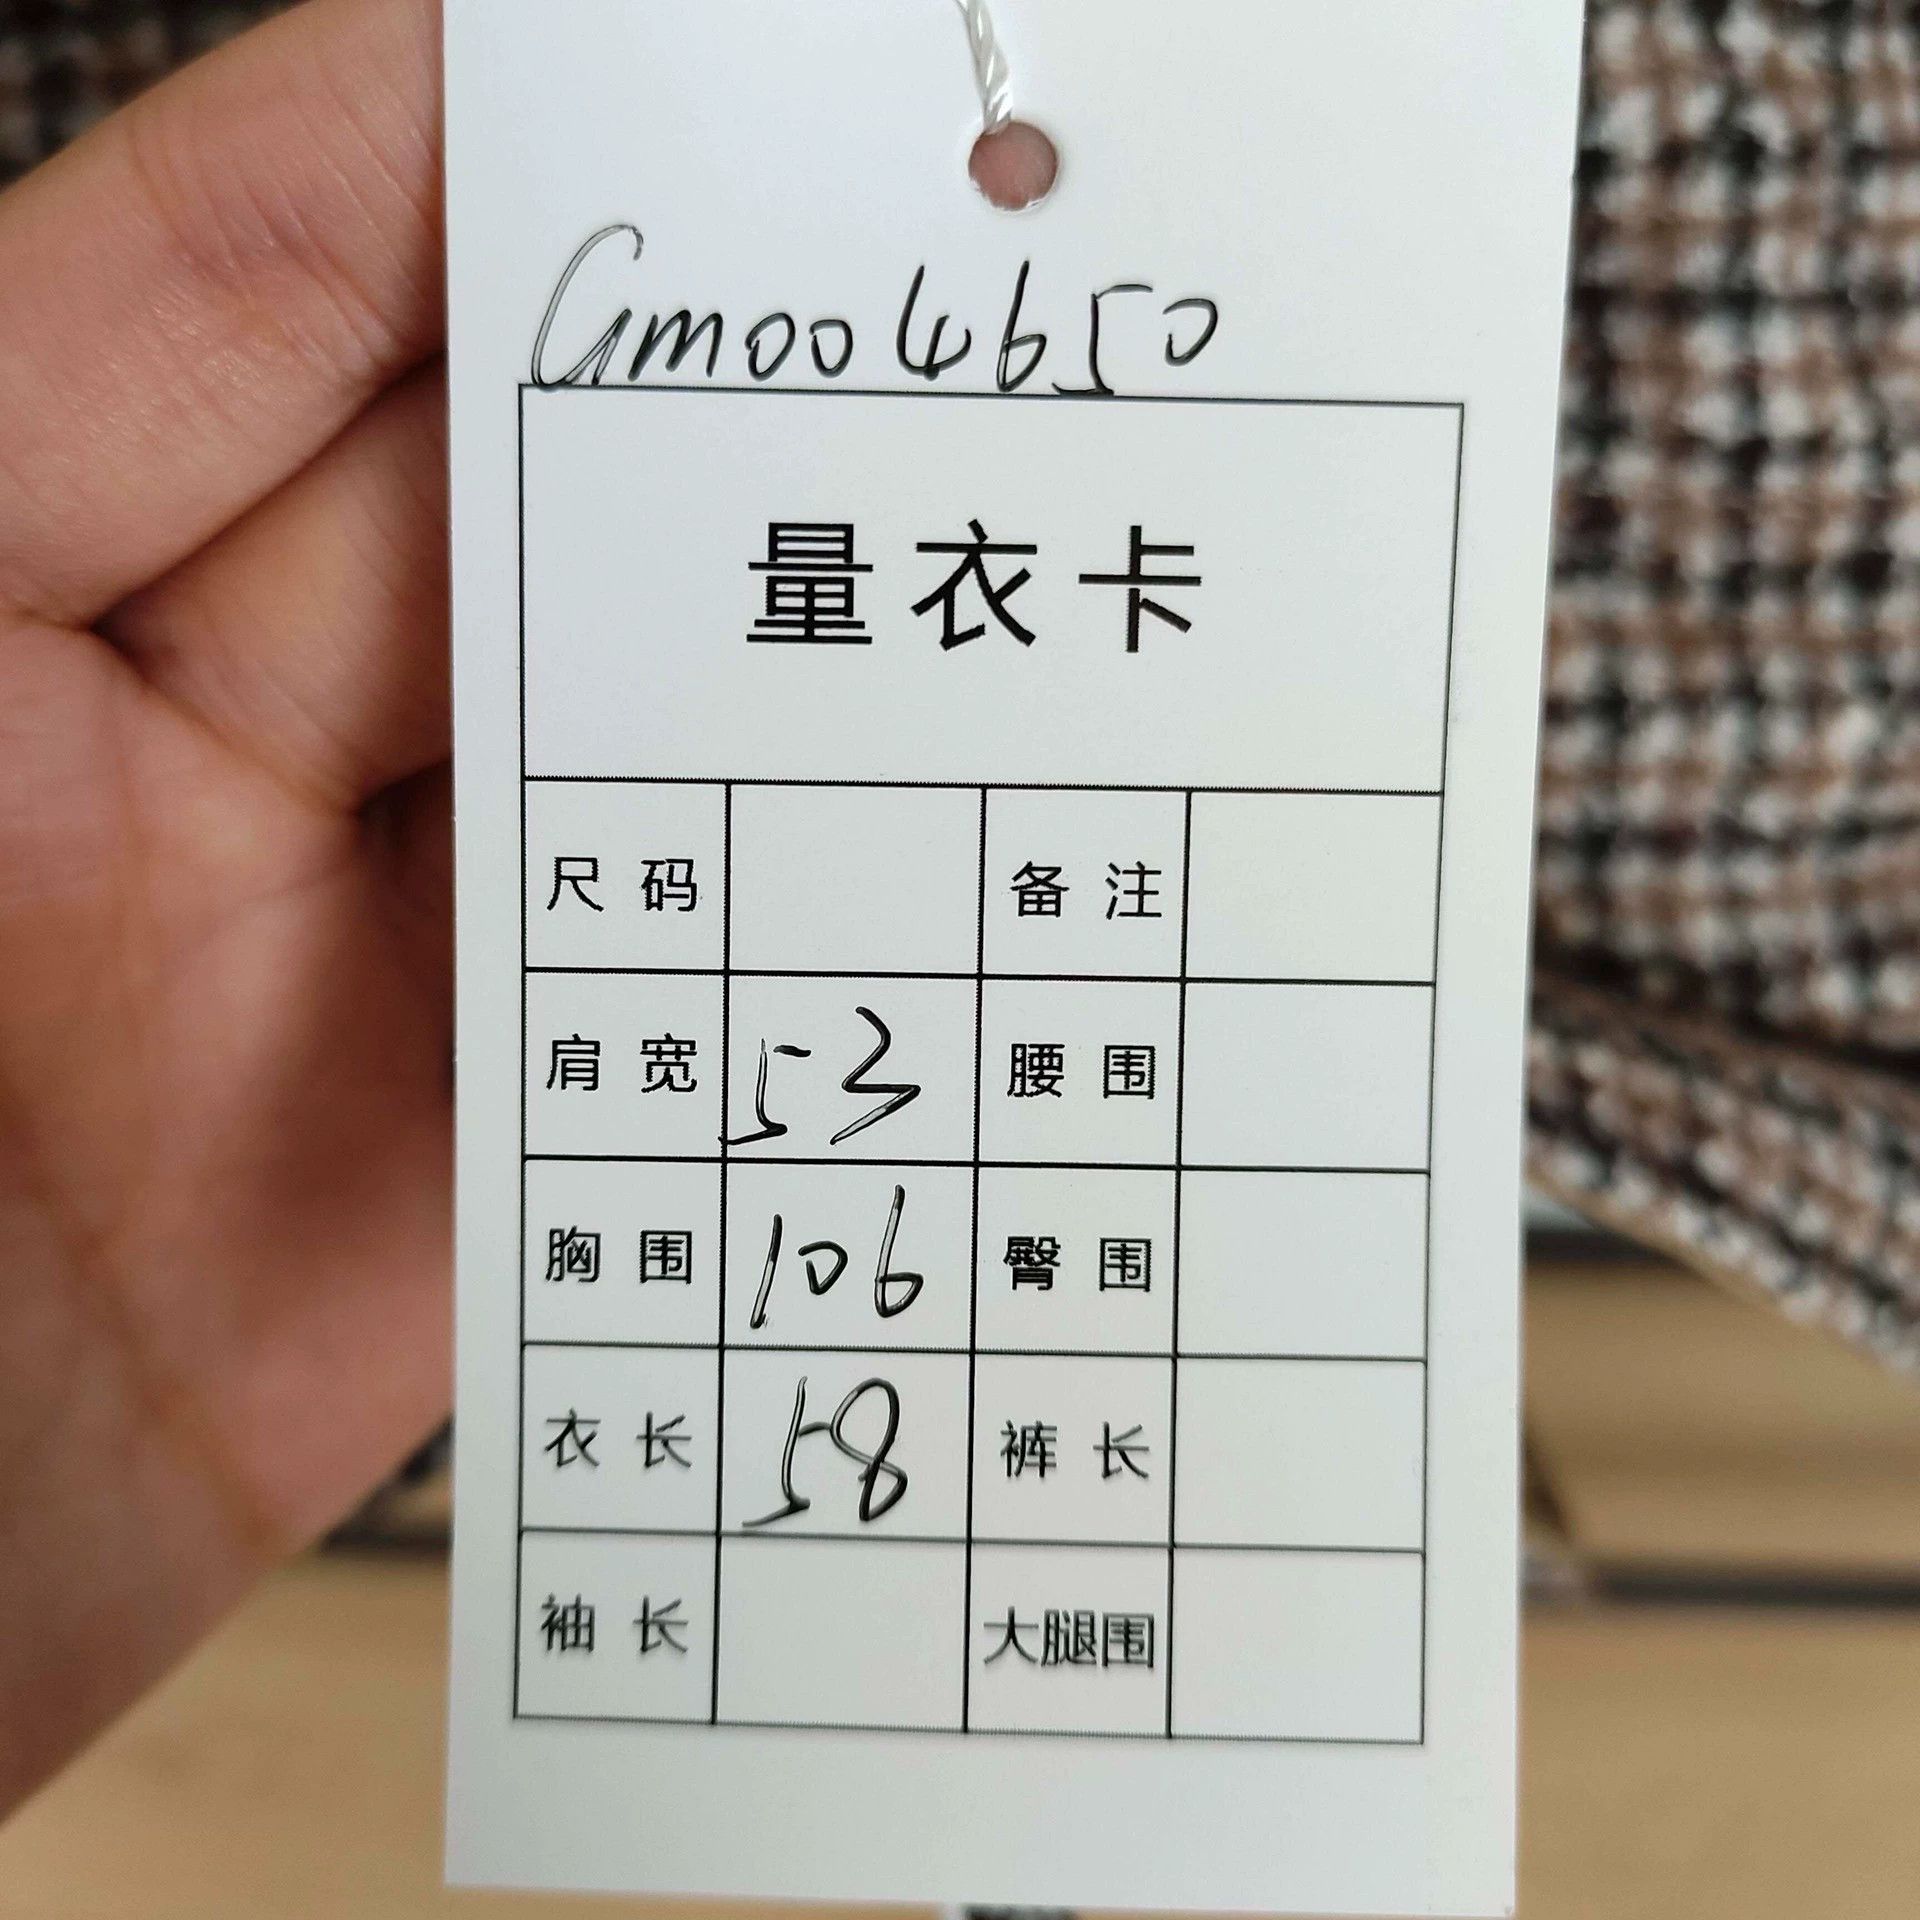 Gm004650
量衣卡
尺码 备注
肩宽 53 腰围
胸围 106 臀围
衣长 58 裤长
袖长 大腿围